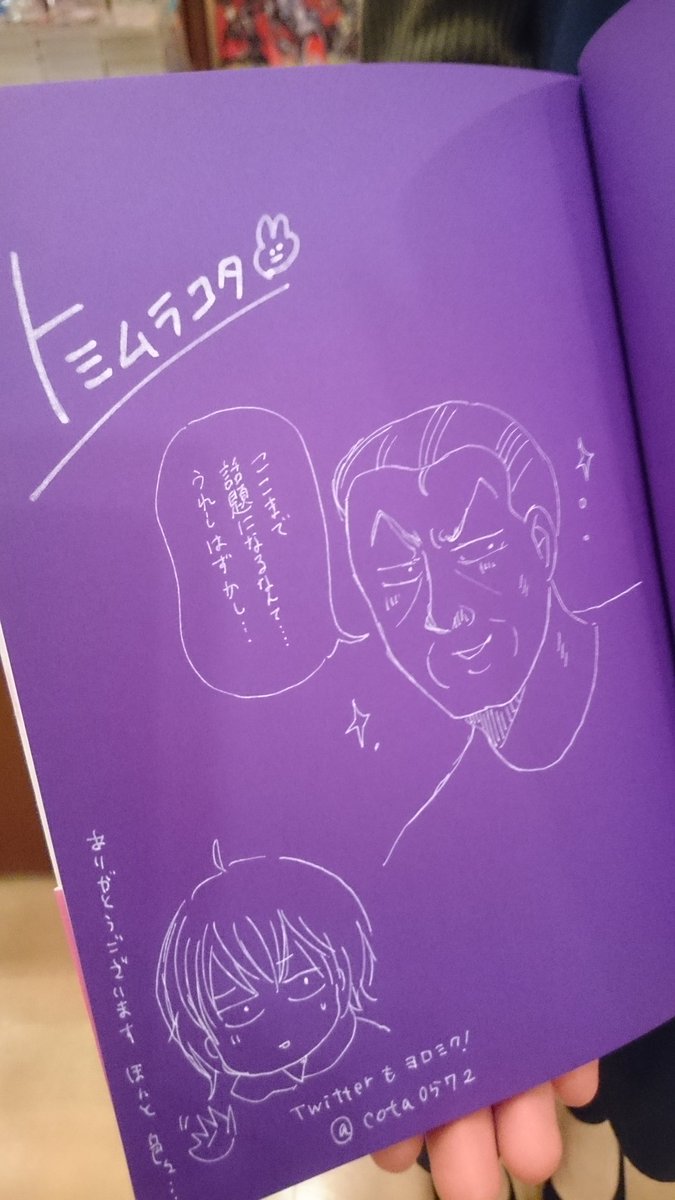 トミムラコタ
ここまで
話題になるなんて……
うれしはずかし…
ありがとうございます ほんと 色々…
Twitterも ヨロミク!
@cota0572